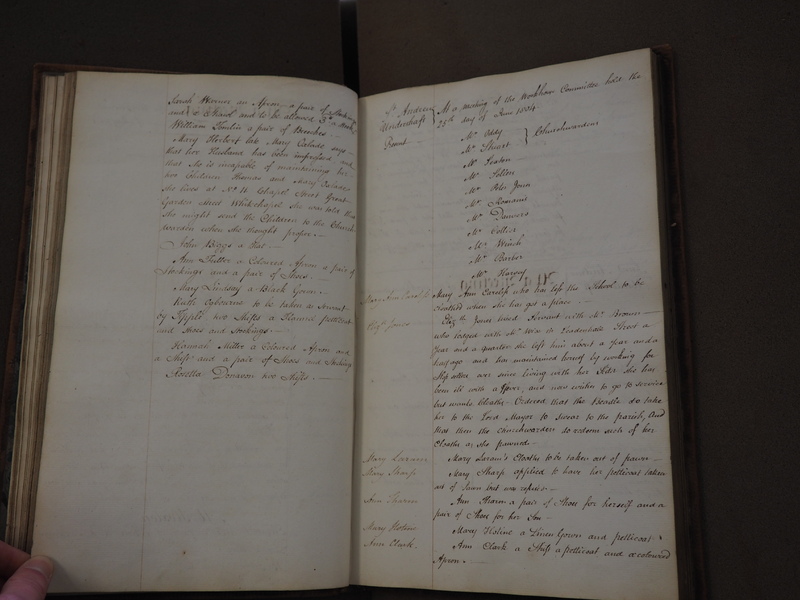 Sarah Warner an Apron a pair of Stockings
and a Shawl and to be allowed 3d a Week
William Tomlin a pair of Breeches
Mary Herbert late Mary says
that her Husband has been impressed and
that she is incapable of maintaining her
two Children Thomas and Mary
She lives at No 11 Chapel Street Great
Garden Street Whitechapel She was told that
she might send the Children to the Church
warden when she thought proper.
John Biggs a Hat.
Ann a Coloured Apron a pair of
Stockings and a pair of Shoes.
Mary Lindsay a Black Gown.
Ruth Osbourne to be taken as Servant
by two Shifts a Flannel petticoat
and Shoes and Stockings.
Hannah Miller a Coloured Apron and
a Shift and a pair of Shoes and Stockings
Rosetta Donavon two Shifts.
St Andrew
Undershaft
Present
At a meeting of the Workhouse Committee held the
25th day of June 1804
Mr Oddy
Mr Stuart
Churchwardens
Mr Seaton
Mr
Mr Peter Jones
Mr Romanis
Mr Danvers
Mr Collier
Mr Welsh
Mr Barber
Mr Harvey
Mary Ann
Mary Ann who has left the School to be
Cloathed when she has got a place.
Elizth Jones
Elizth Jones lived Servant with Mr Brown
who lodged with Mr in Leadenhall Street a
Year and a quarter she left him about a Year and a
half ago and has maintained herself by working for
Slop sellers ever since living with her Sister she has
been ill with a Fever, and now wishes to go to service
but wants Cloaths. Ordered that the Beadle do take
her to the Lord Mayor to Swear to the parish, And
that then the Churchwarden do redeem such of her
Cloaths as she pawned
Mary Laram
Mary Laram's Cloaths to be taken out of pawn
Mary Sharp
Mary Sharp applied to have her petticoat taken
out of pawn but was refused
Ann Tharm
Ann Tharm a pair of Shoes for herself and a
pair of Shoes for her Son
Mary
Mary a Linen Gown and petticoat
Ann Clark
Ann Clark a Shift a petticoat and a coloured
Apron